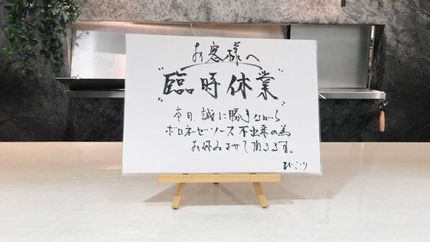 お客様へ
"臨時休業"
本日 誠に勝手ながら
ボロネーゼソース 不出来の為
お休みさせて頂きます。